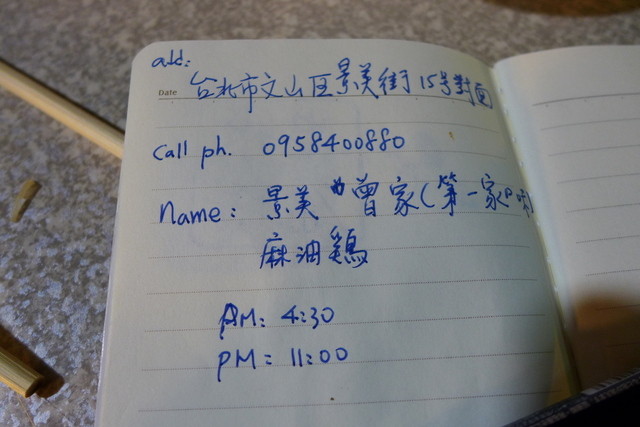 add:
Date 台北市文山区景美街15号對面
Call ph. 0958400880
Name: 景美"曾家(第一家
麻油鷄
AM: 4:30
PM: 11:00